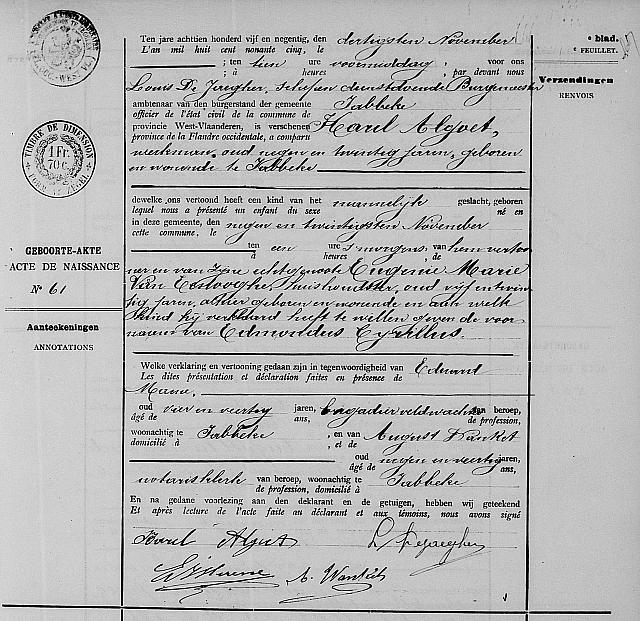 TIMBRE DE DIMENSION
1 Fr.
70 c.
GEBOORTE-AKTE
ACTE DE NAISSANCE
No 61
Aanteekeningen
ANNOTATIONS
blad.
FEUILLET.
Verzendingen
RENVOIS
Ten jare achttien honderd vijf en negentig, den dertigsten November
L'an mil huit cent nonante cinq, le
; ten tien ure voormiddag, voor ons
; à heures , par devant nous
Louis De , schepen dienstdoende Burgemeester
ambtenaar van den burgerstand der gemeente Jabbeke
officier de l'état civil de la commune de
provincie West-Vlaanderen, is verschenen Karel Algoet,
province de la Flandre occidentale, a comparu
werkman, oud negen en twintig jaren, geboren
en wonende te Jabbeke
dewelke ons vertoond heeft een kind van het mannelijk geslacht, geboren
lequel nous a présenté un enfant du sexe né en
in deze gemeente, den negen en twintigsten November
cette commune, le
ten een ure 's morgens, van hem vertoo-
à heures de
ner en van zijne echtgenoote Eugenie Marie
Van , huishoudster, oud vijf en twin-
tig jaren, alhier geboren en wonende en aan welk
kind hij verklaard heeft te willen geven de voor-
namen van Edmondus Cyrillus.
Welke verklaring en vertooning gedaan zijn in tegenwoordigheid van Eduard
Les dites présentation et déclaration faites en présence de
oud vier en veertig jaren, brigadier veldwachter van beroep,
âgé de ans, de profession,
woonachtig te Jabbeke , en van August
domicilié à , et de
oud negen en veertig jaren,
âgé de ans,
notarisklerk van beroep, woonachtig te Jabbeke
de profession, domicilié à
En na gedane voorlezing aan den deklarant en de getuigen, hebben wij geteekend
Et après lecture de l'acte faite au déclarant et aux témoins, nous avons signé
Karel Algoet